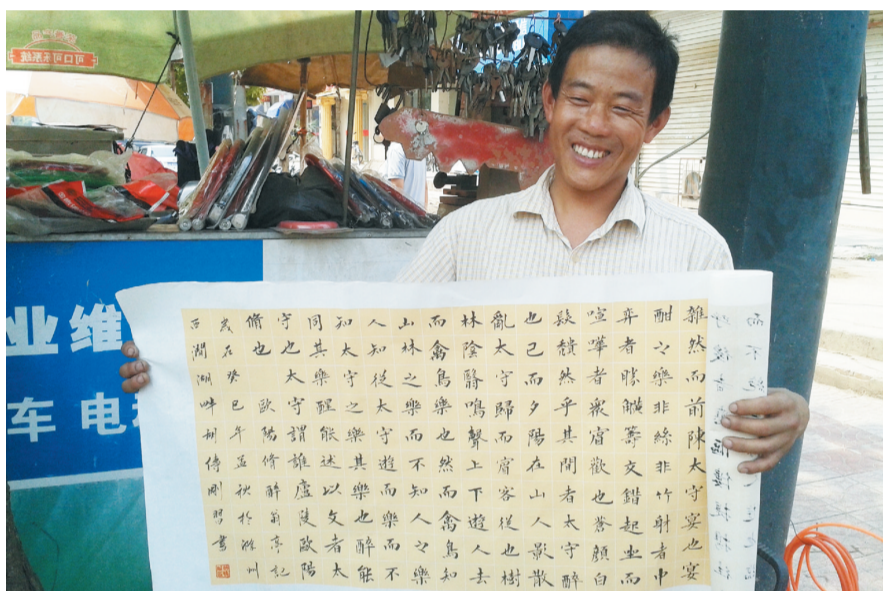 可口可乐系统
业维
车 电
雜然而前陳太守宴也宴
酣之樂非絲非竹射者中
弈者勝觥籌交錯起坐而
喧嘩者衆賓歡也蒼顏白
髮頹然乎其間者太守醉
也已而夕陽在山人影散
亂太守歸而賓客從也樹
林陰翳鳴聲上下遊人去
而禽鳥樂也然而禽鳥知
山林之樂而不知人之樂
人知從太守遊而樂而不
知太守之樂其樂也醉能
同其樂醒能述以文者太
守也太守謂誰廬陵歐陽
脩也 歐陽脩醉翁亭記
癸巳年孟秋於滁州
西澗湖畔 傳剛習書